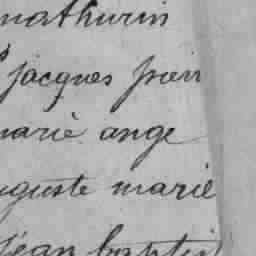 mathurin
jacques pierr
marie ange
uguste marie
jéan baptis